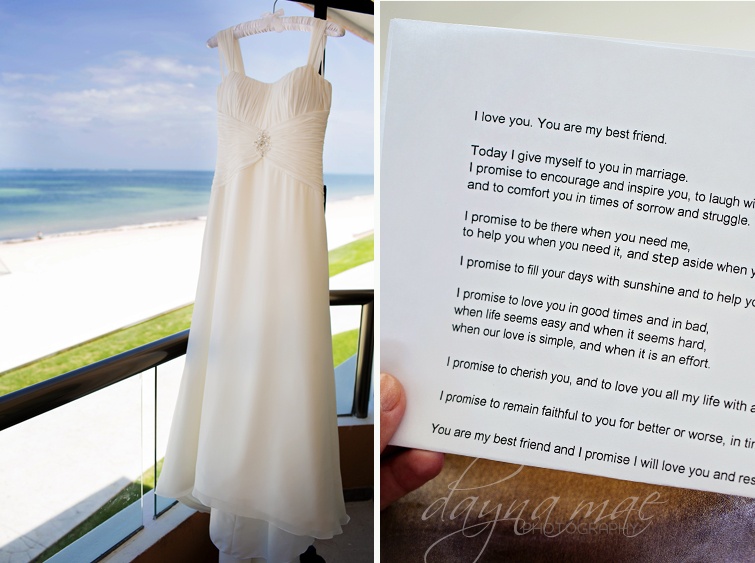 I love you. You are my best friend.
Today I give myself to you in marriage.
I promise to encourage and inspire you, to laugh wi
and to comfort you in times of sorrow and struggle.
I promise to be there when you need me,
to help you when you need it, and step aside when y
I promise to fill your days with sunshine and to help yo
I promise to love you in good times and in bad,
when life seems easy and when it seems hard,
when our love is simple, and when it is an effort.
I promise to cherish you, and to love you all my life with a
I promise to remain faithful to you for better or worse, in tim
You are my best friend and I promise I will love you and res
dayna mae
PHOTOGRAPHY